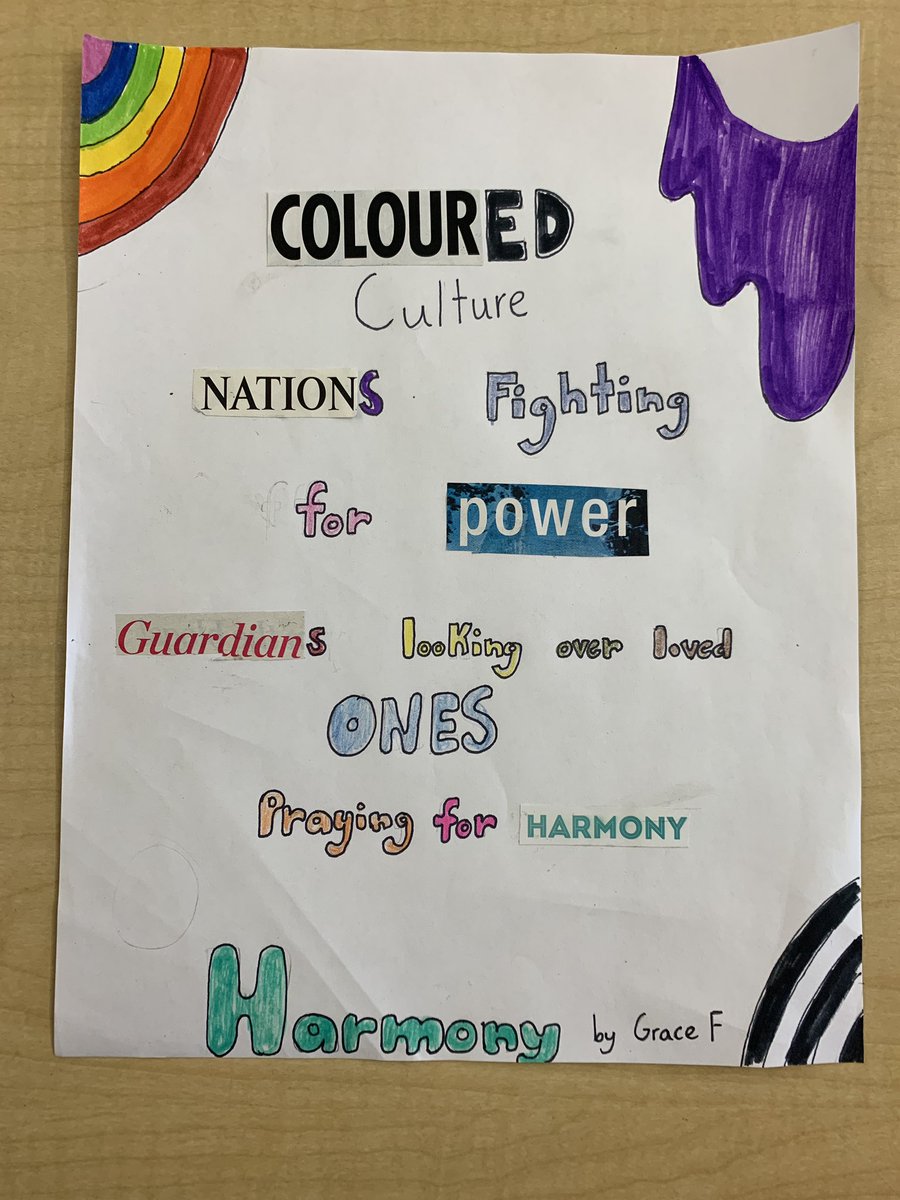 COLOURED
Culture
NATIONS Fighting
for power
Guardians looking over loved
ONES
Praying for HARMONY
Harmony by Grace F